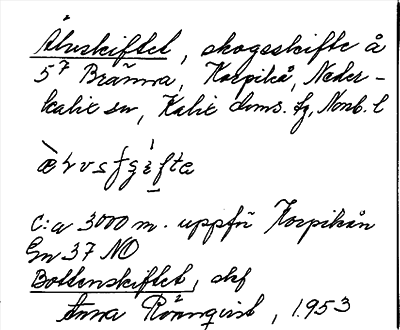 Älvskiftet, skogsskifte å
5⁷ Bränna, Korpikå, Neder-
kalix sn, Kalix doms. fg, Norrb. l
C:a 3000 m. uppför Korpikån
Gm 37 NO
Bottenskiftet, skf
Anna Rönnqvist, 1953